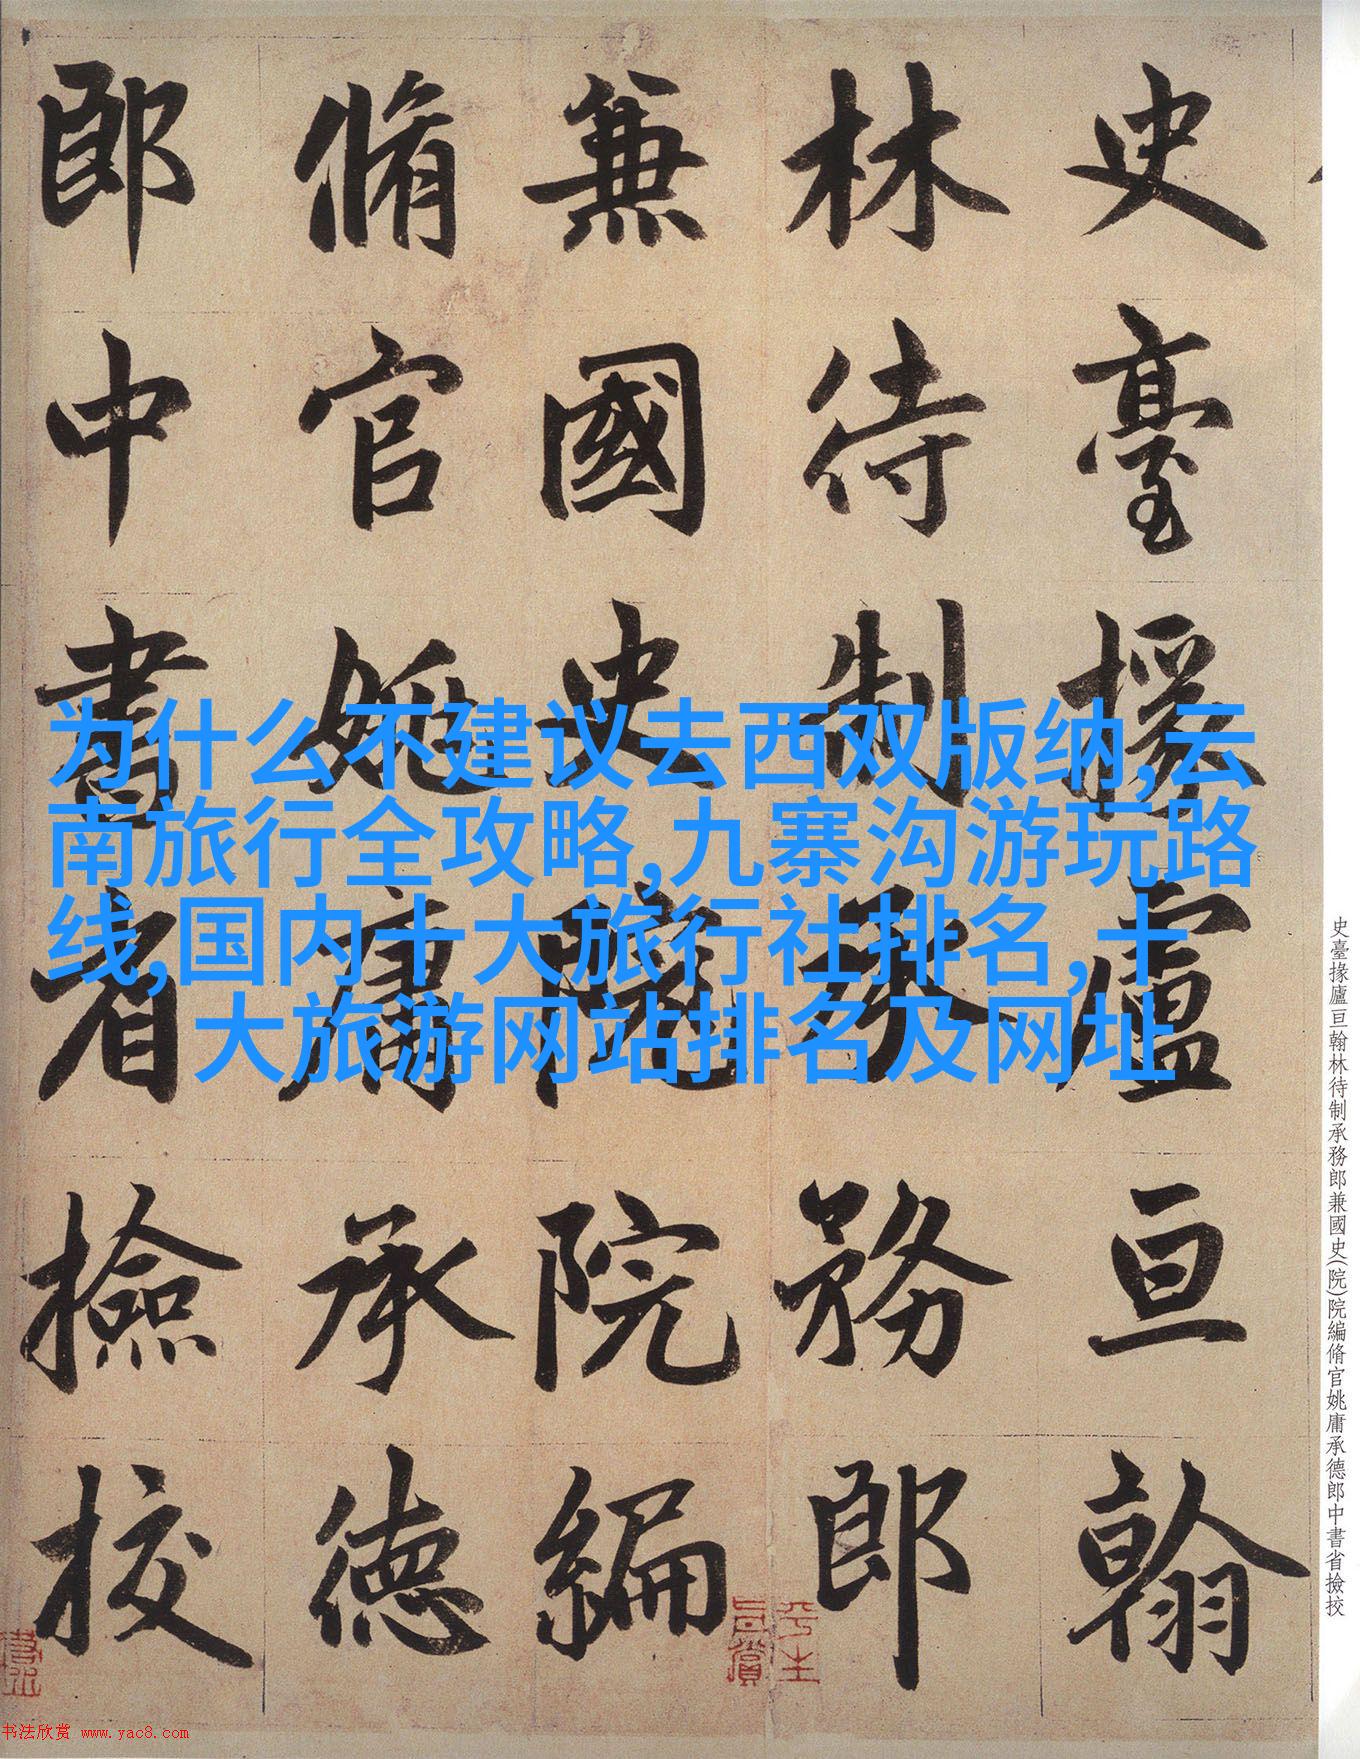 史臺掾廬亘翰
林待制承務郎
兼國史院院編
脩官姚庸承德
郎中書省撿挍
为什么不建议去西双版纳,云
南旅行全攻略,九寨沟游玩路
线,国内十大旅行社排名,十
大旅游网站排名及网址
史臺掾廬亘翰林待制承務郎兼國史(院)院編脩官姚庸承德郎中書省撿挍
书法欣赏 www.yac8.com